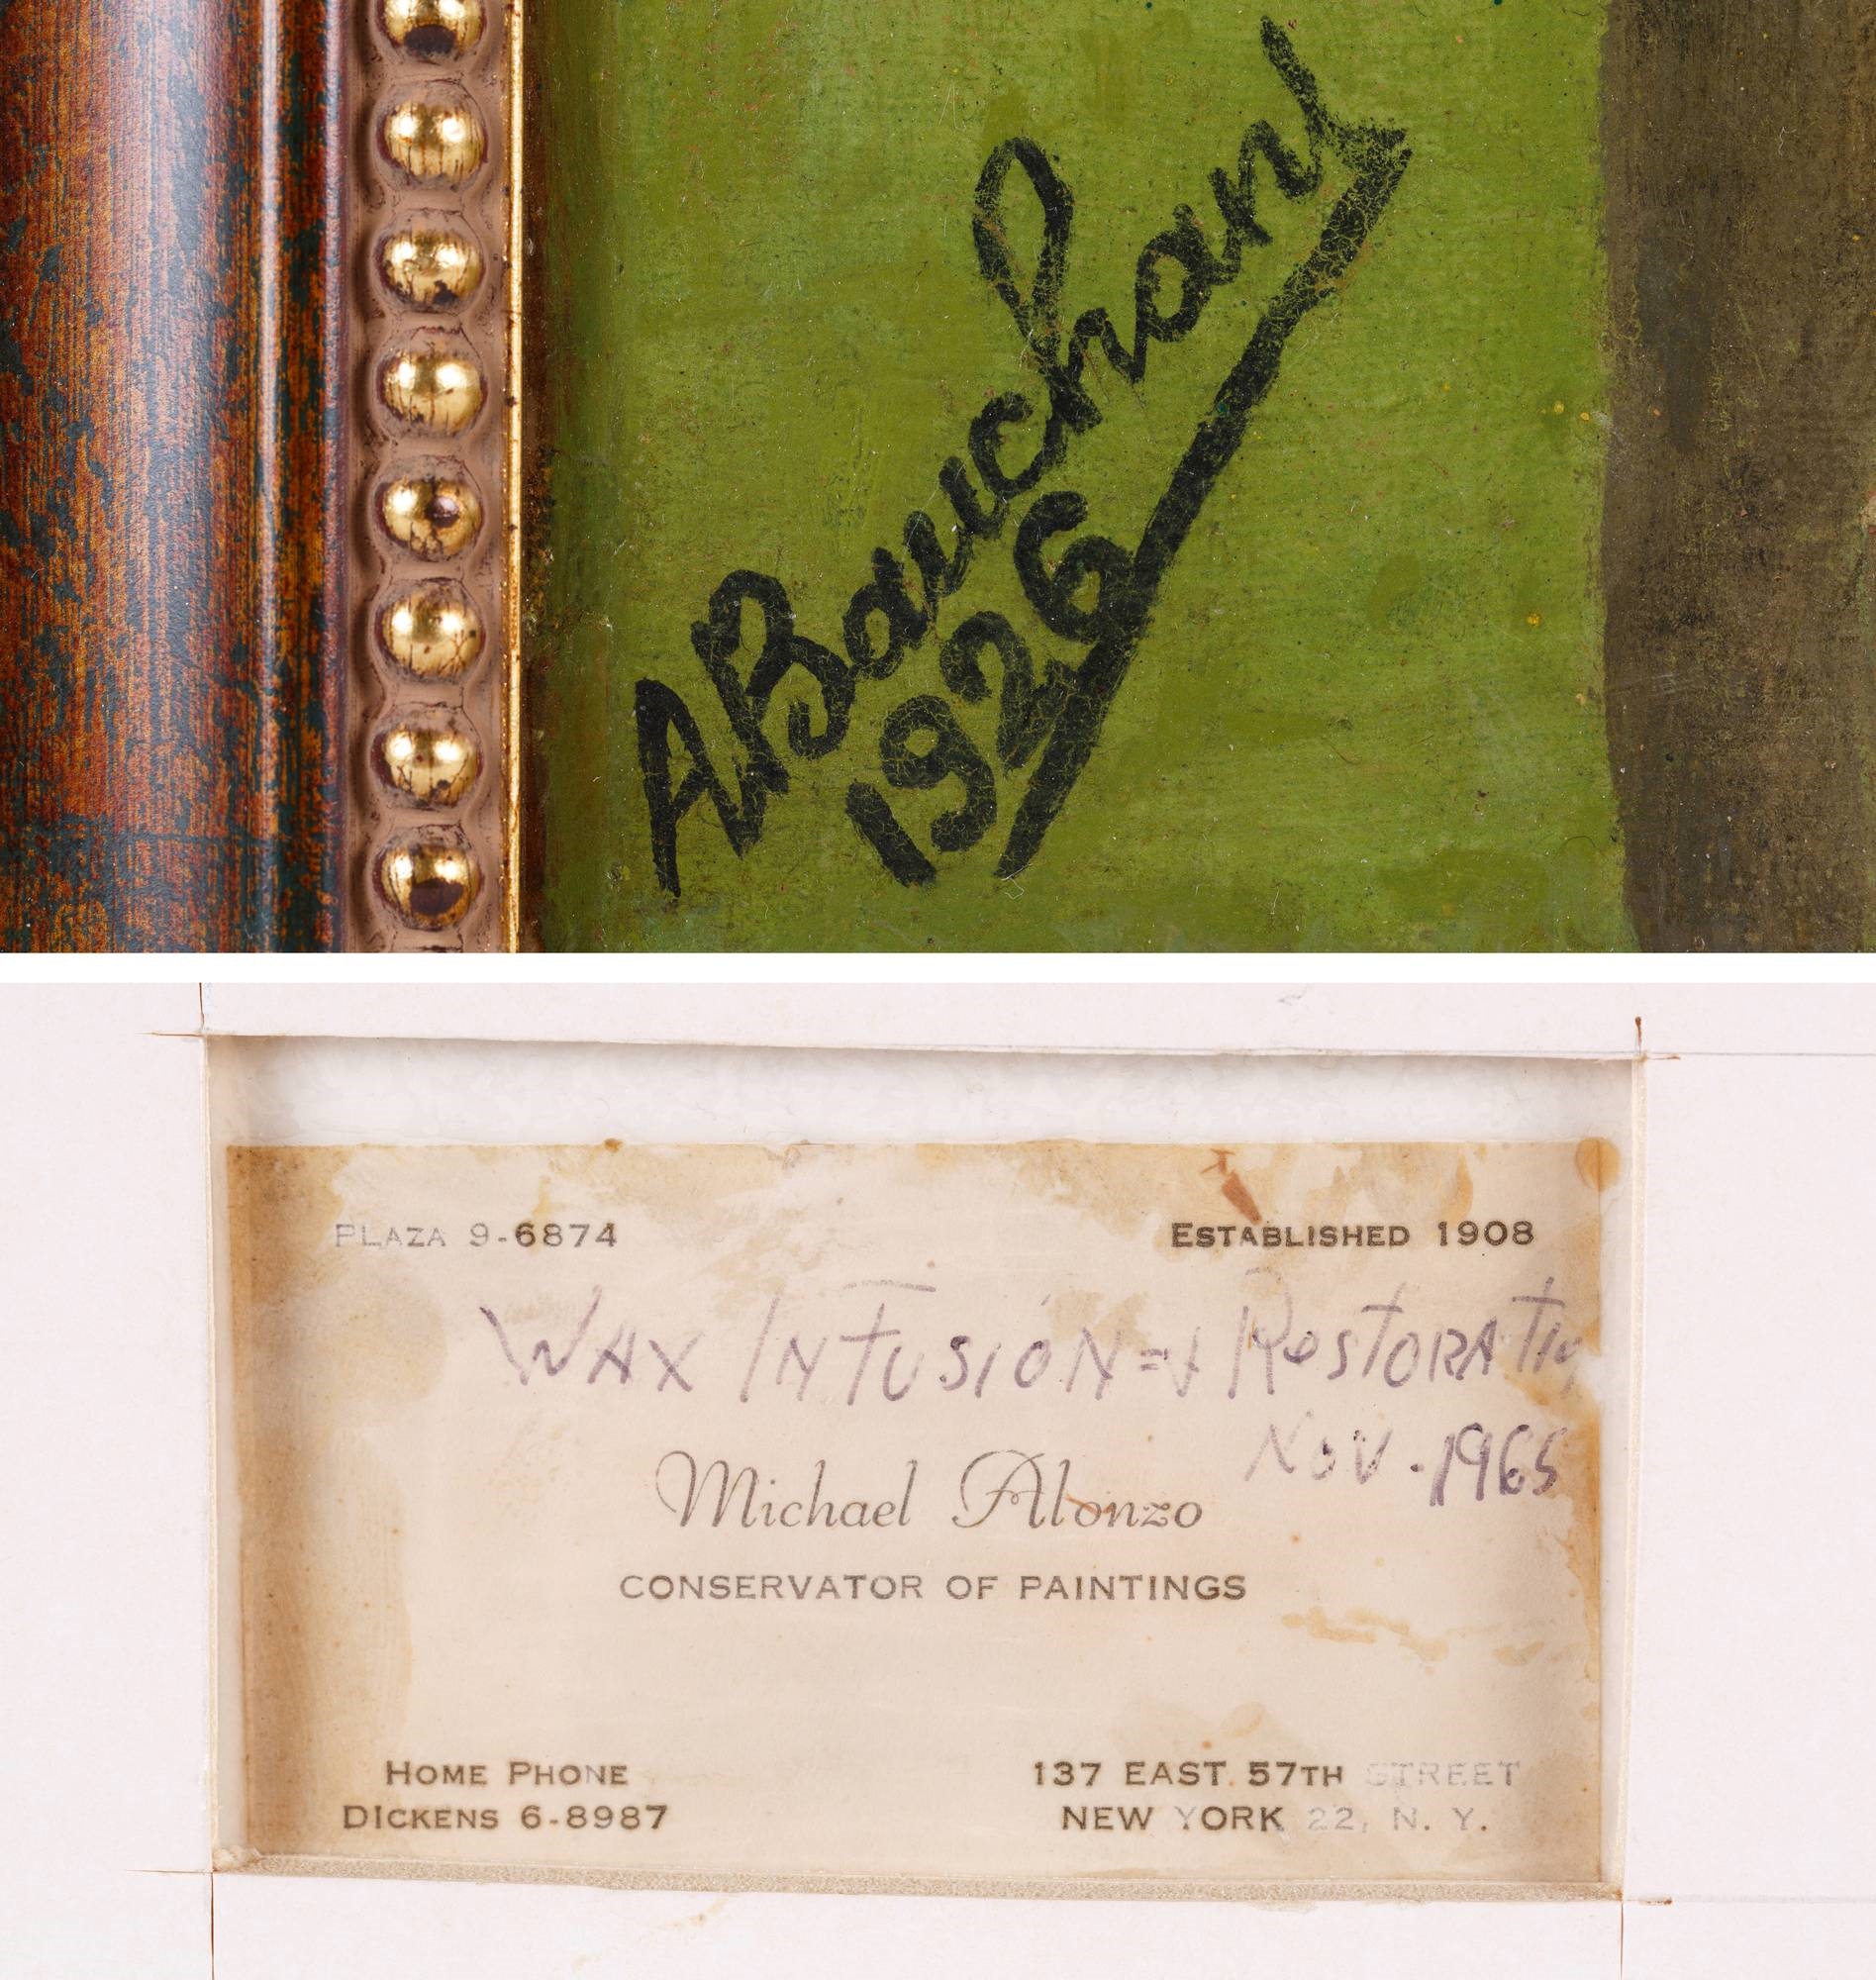 ABauchant
1926
PLAZA 9-6874
ESTABLISHED 1908
WAX INFUSION = + RESTORATIO
NOV. 1965
Michael Alonzo
CONSERVATOR OF PAINTINGS
HOME PHONE
DICKENS 6-8987
137 EAST 57TH STREET
NEW YORK 22, N. Y.